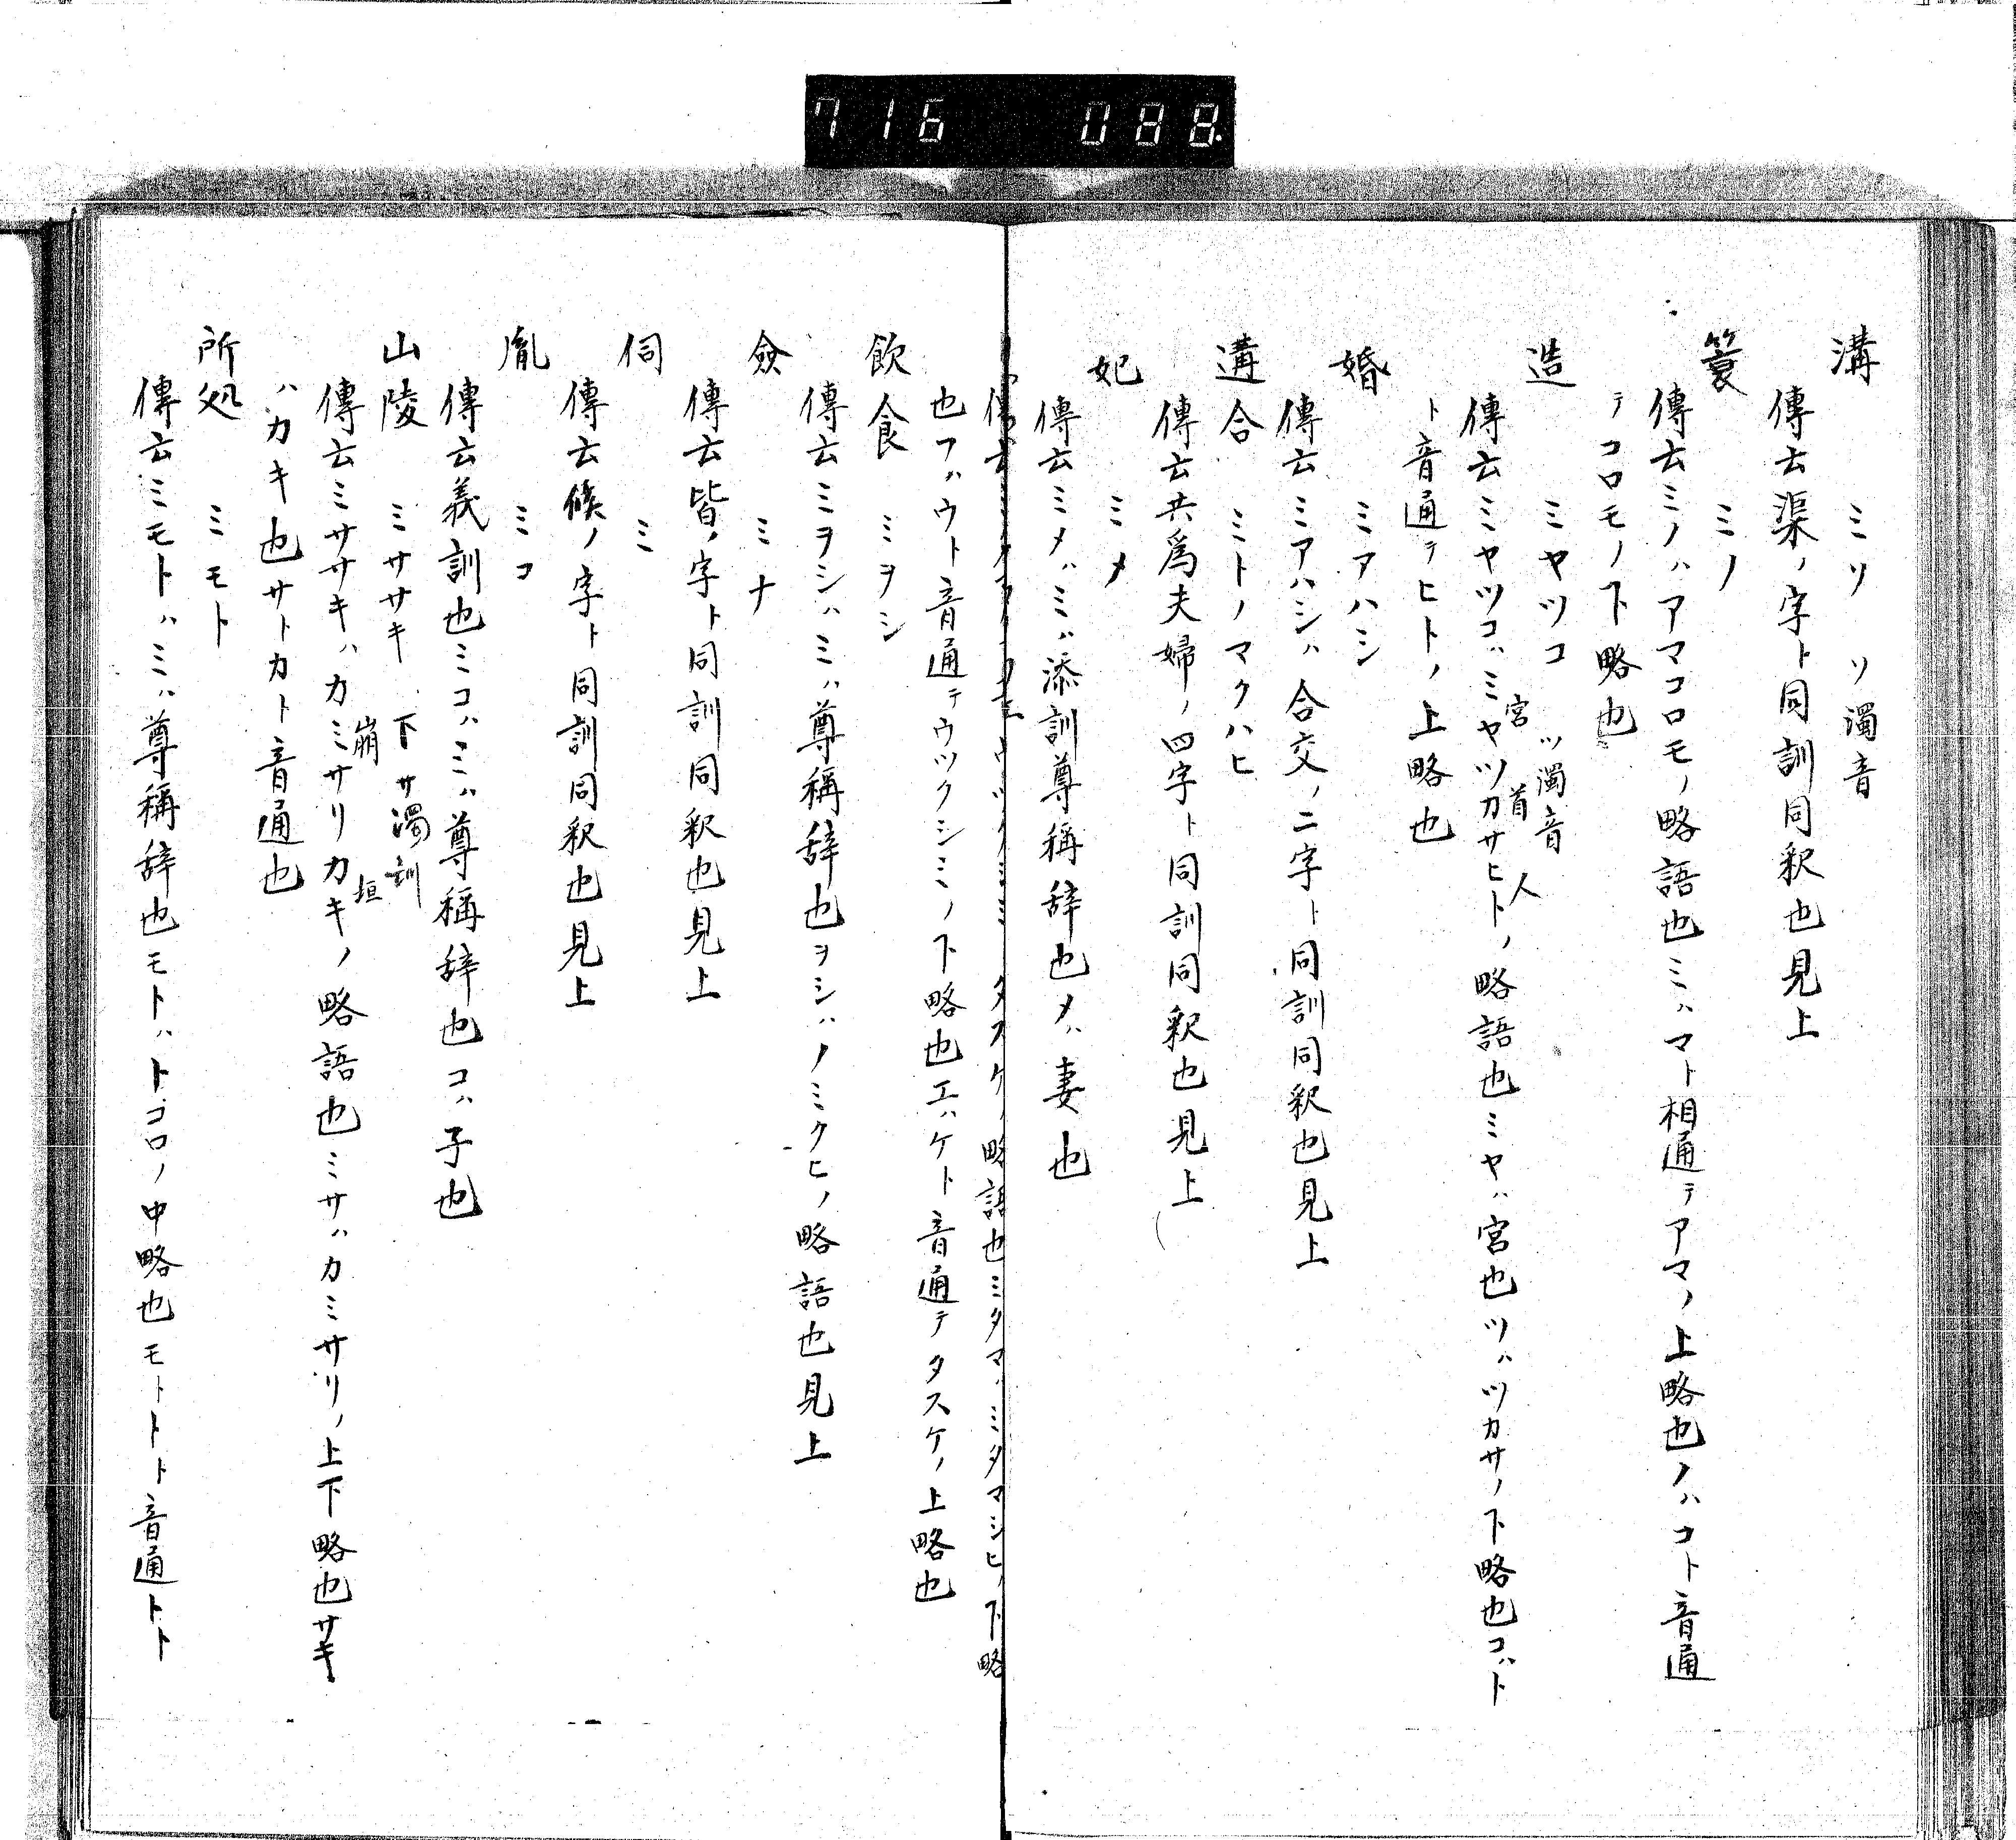 716 088.
溝 ミソ ソ濁音
傳云渠ノ字ト同訓同釈也見上
簔 ミノ
傳云ミノハアマコロモノ略語也ミハマト相通テアマノ上略也ノハコト音通
テコロモノ下略也
造 ミヤツコ ツ濁音
傳云ミヤツコハミヤツカサヒトノ略語也ミヤハ宮也ツハツカサノ下略也コハト
宮 首 人
ト音通テヒトノ上略也
婚 ミアハシ
傳云ミアハシハ合交ノ二字ト同訓同釈也見上
遘合 ミトノマクハヒ
傳云共爲夫婦ノ四字ト同訓同釈也見上
妃 ミメ
傳云ミメハミハ添訓尊稱辞也メハ妻也
タスケノ略語也ミタマハミタマシヒノ下略
也フハウト音通テウツクシミノ下略也エハケト音通テタスケノ上略也
飲食 ミヲシ
傳云ミヲシハミハ尊稱辞也ヲシハノミクヒノ略語也見上
僉 ミナ
傳云皆ノ字ト同訓同釈也見上
伺 ミ
傳云候ノ字ト同訓同釈也見上
胤 ミコ
傳云義訓也ミコハミハ尊稱辞也コハ子也
山陵 ミササキ 下サ濁訓
傳云ミササキハカミサリカキノ略語也ミサハカミサリノ上下略也サキ
崩 垣
ハカキ也サトカト音通也
所処 ミモト
傳云ミモトハミハ尊稱辞也モトハトコロノ中略也モトトト音通トト